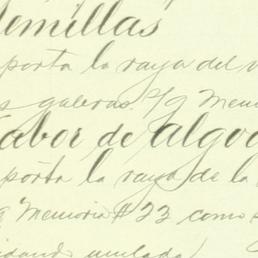 Semillas
porta la raya del
galeras. S/g Memo
Labor de algod
porta la raya de la
Memoria #23 como